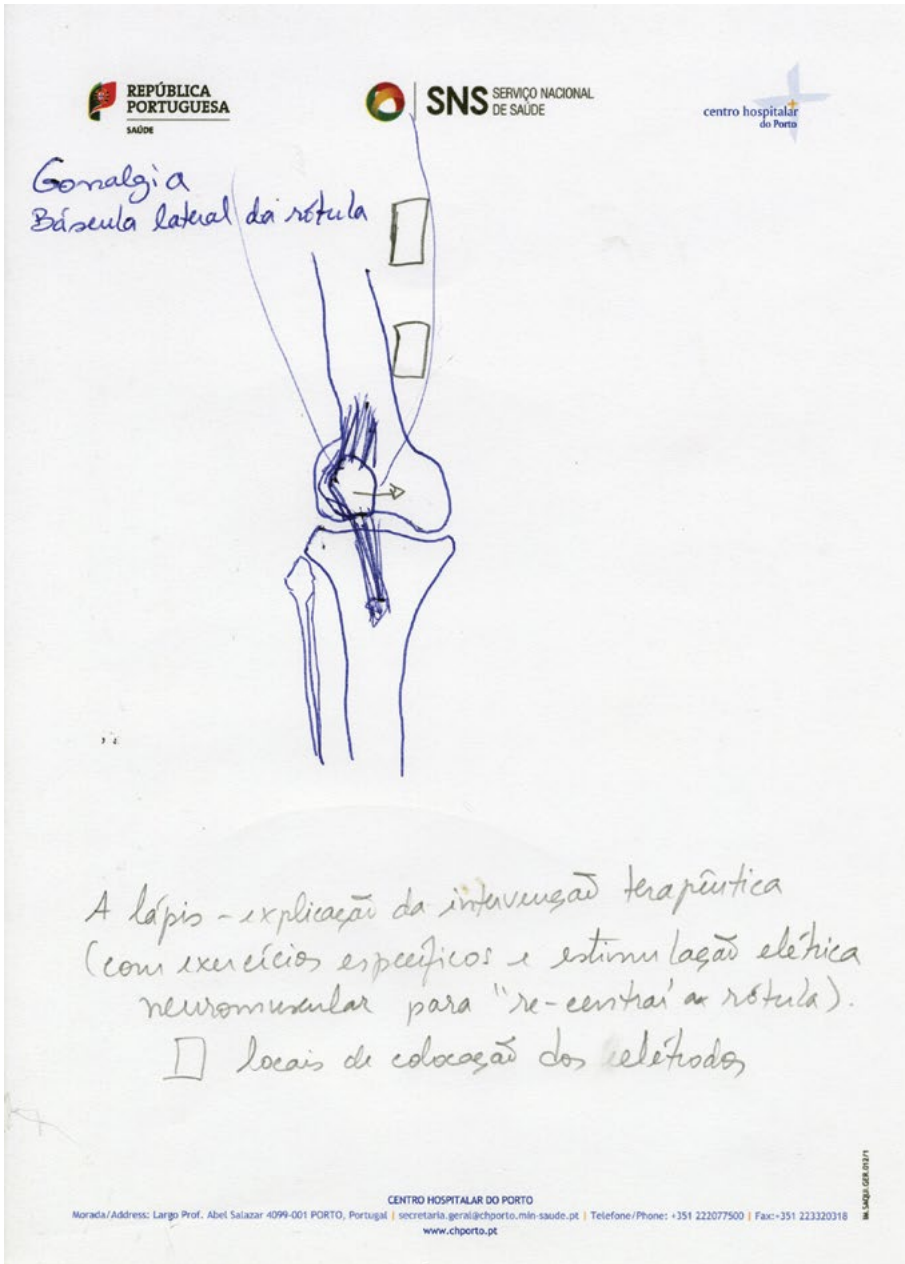 REPÚBLICA
PORTUGUESA
SAÚDE
SNS SERVIÇO NACIONAL
DE SAÚDE
centro hospitalar
do Porto
Gonalgia
Báscula lateral da rótula
A lápis - explicação da intervenção terapêutica
(com exercícios específicos e estimulação elétrica
neuromuscular para "re-centrar" a rótula).
locais de colocação dos elétrodos
IM.SAQU.GER.012/1
CENTRO HOSPITALAR DO PORTO
Morada/Address: Largo Prof. Abel Salazar 4099-001 PORTO, Portugal | secretaria.geral@chporto.min-saude.pt | Telefone/Phone: +351 222077500 | Fax:+351 223320318
www.chporto.pt